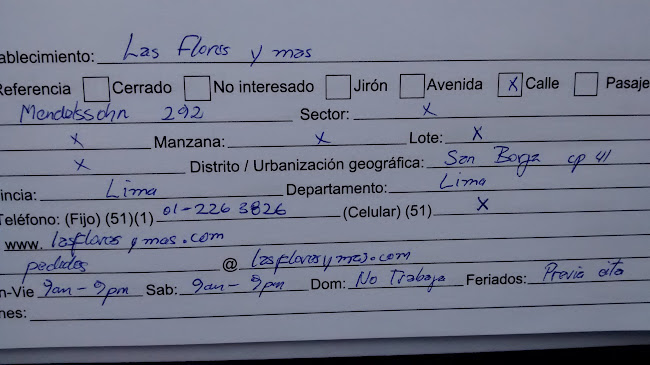 ablecimiento: Las Flores y mas
Referencia Cerrado No interesado Jirón Avenida X Calle Pasaje
Mendelssohn 292 Sector: X
X Manzana: X Lote: X
X Distrito / Urbanización geográfica: San Borja cp 41
incia: Lima Departamento: Lima
Teléfono: (Fijo) (51)(1) 01-226 3826 (Celular) (51) X
www. lasfloresymas.com
pedidos @ lasfloresymas.com
n-Vie 9am - 9pm Sab: 9am - 9pm Dom: No Trabaja Feriados: Previa cita
nes: